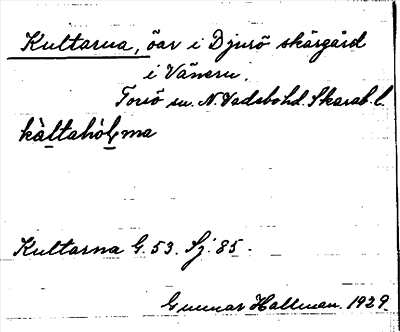 Kultarna, öar i Djurö skärgård
i Vänern.
Torsö sn. N. Vadsbo hd. Skarab. l.
kàltahòḷma
Kultarna G. 53. Sj. 85.
Gunnar Hallman. 1929